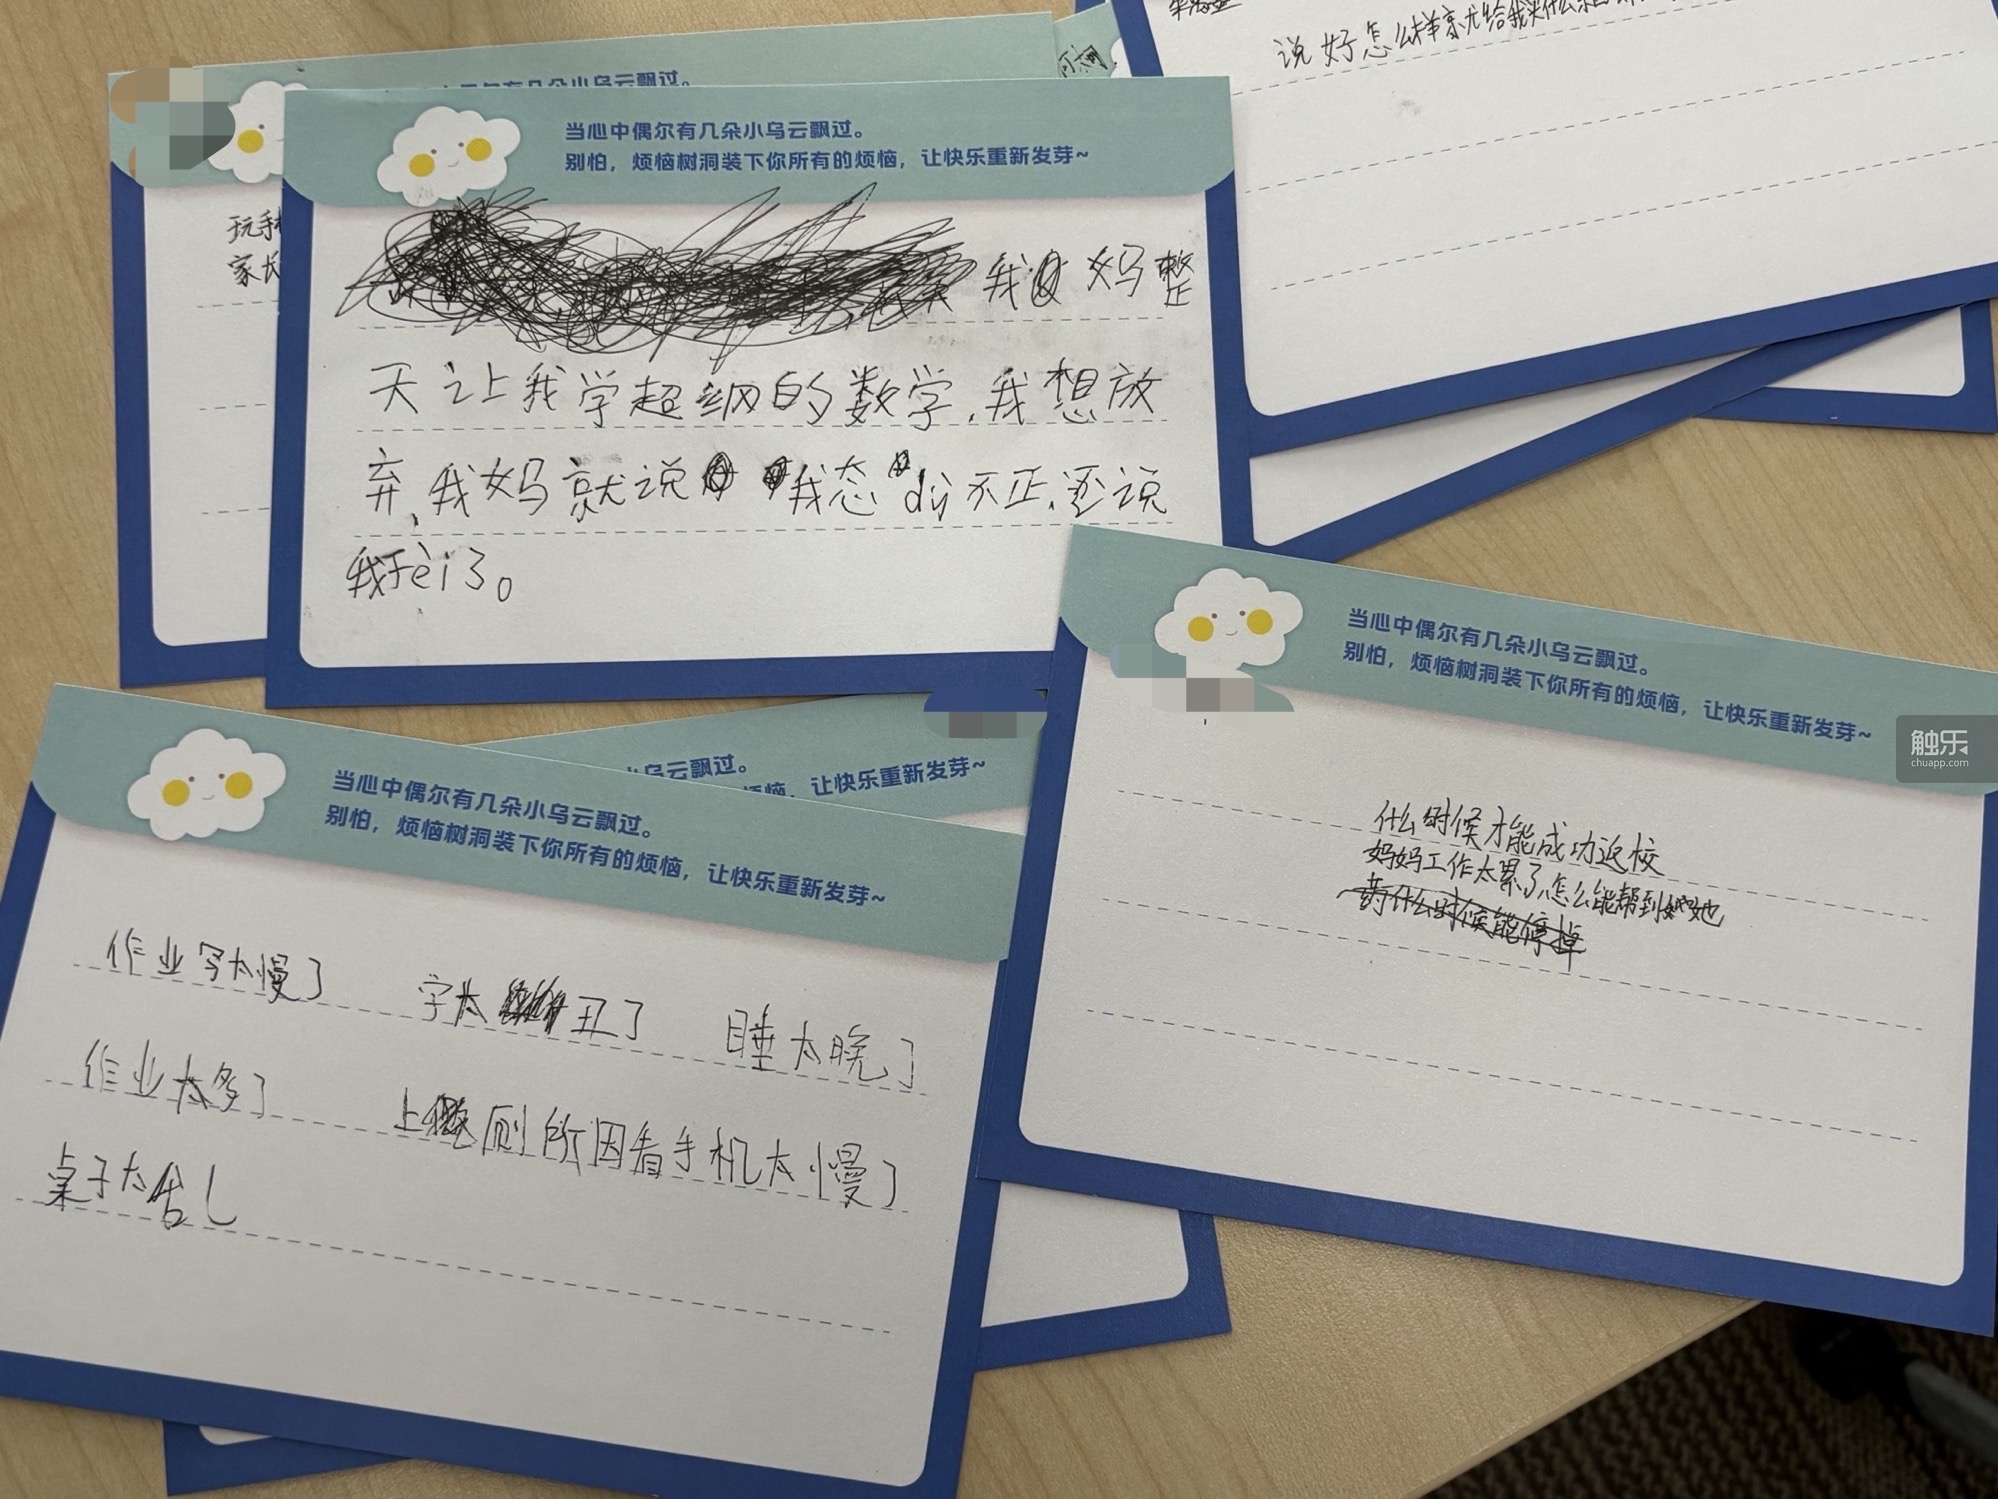 说好怎么样家尤给我
当心中偶尔有几朵小乌云飘过。
别怕，烦恼树洞装下你所有的烦恼，让快乐重新发芽~
玩手
家长
我妈整
天让我学超级的数学，我想放
弃，我妈就说我态dù不正，还说
我fèi了。
当心中偶尔有几朵小乌云飘过。
别怕，烦恼树洞装下你所有的烦恼，让快乐重新发芽~
什么时候才能成功返校
妈妈工作太累了，怎么能帮到她
什么时候能停掉
触乐
chuapp.com
乌云飘过。
让快乐重新发芽~
当心中偶尔有几朵小乌云飘过。
别怕，烦恼树洞装下你所有的烦恼，让快乐重新发芽~
作业写太慢了 字太丑了 睡太晚了
作业太多了 上厕所因看手机太慢了
桌子太乱